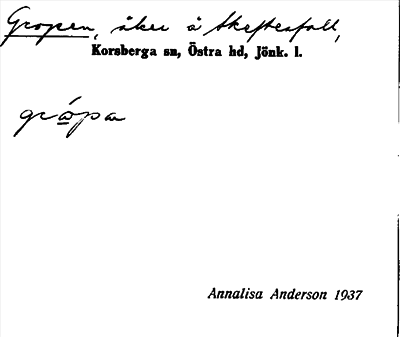 Gropen, åker å Skeftesfall,
Korsberga sn, Östra hd, Jönk. l.
grópa
Annalisa Anderson 1937